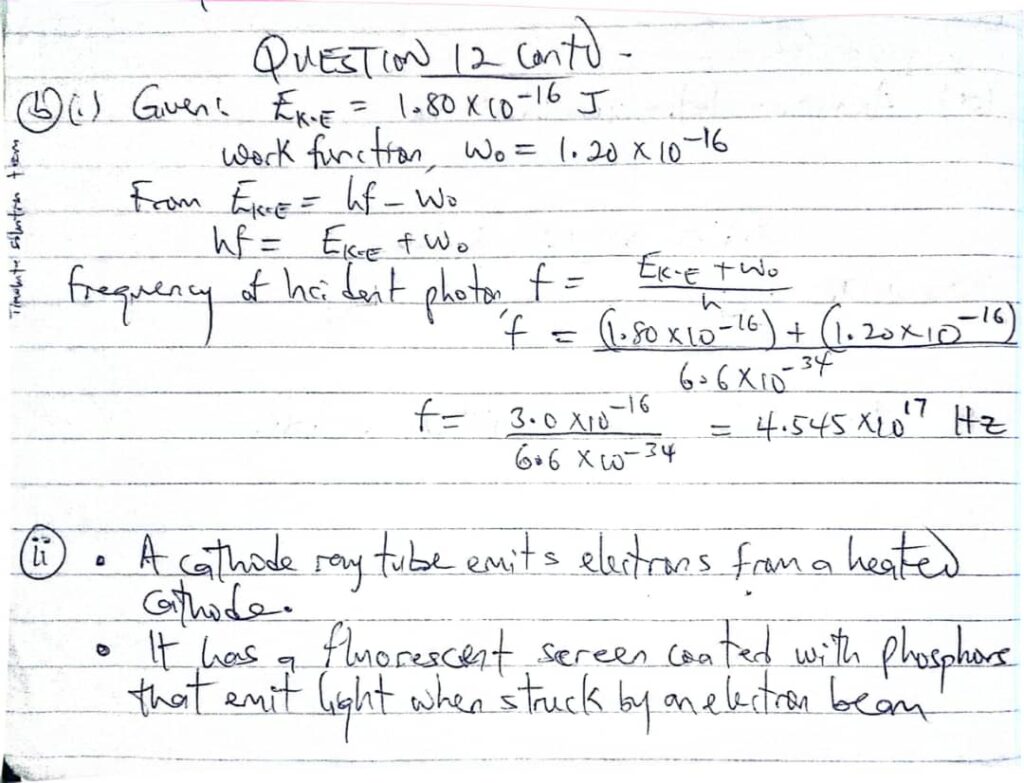 QUESTION 12 Contd -
(b)(i) Given: E_K.E = 1.80 X 10^-16 J
work function, W₀ = 1.20 X 10^-16
From E_K.E = hf - W₀
hf = E_K.E + W₀
frequency of incident photon, f = (E_K.E + W₀) / h
f = ((1.80 X 10^-16) + (1.20 X 10^-16)) / (6.6 X 10^-34)
f = (3.0 X 10^-16) / (6.6 X 10^-34) = 4.545 X 10^17 Hz
(ii) • A cathode ray tube emits electrons from a heated
cathode.
• It has a fluorescent screen coated with phosphors
that emit light when struck by an electron beam